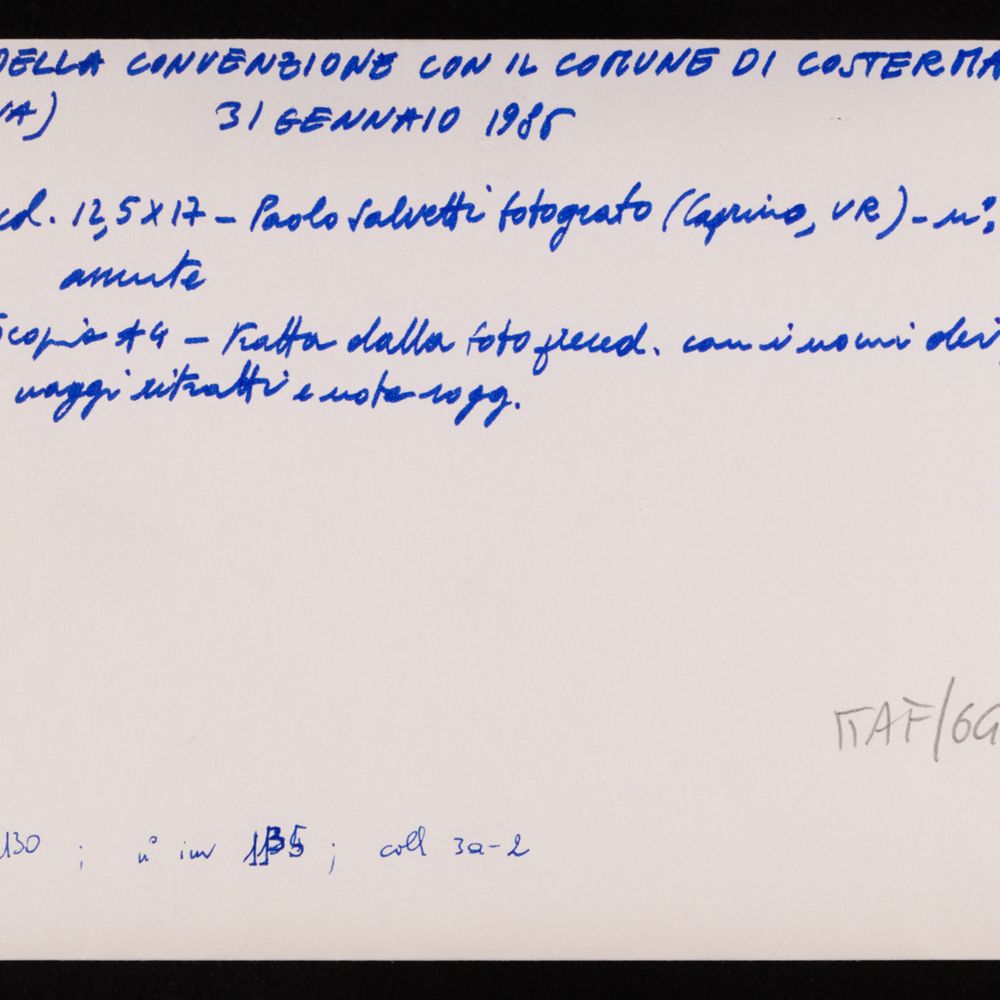 DELLA CONVENZIONE CON IL COMUNE DI COSTERMA
VA) 31 GENNAIO 1986
cd. 12,5x17 - Paolo Salvetti fotografo (Caprino, VR) - n°
assente
scopia A4 - Tratta dalla foto preced. con i nomi dei
naggi ritratti e note sogg.
MAF/6G
130 ; n° inv ; coll 3a-2